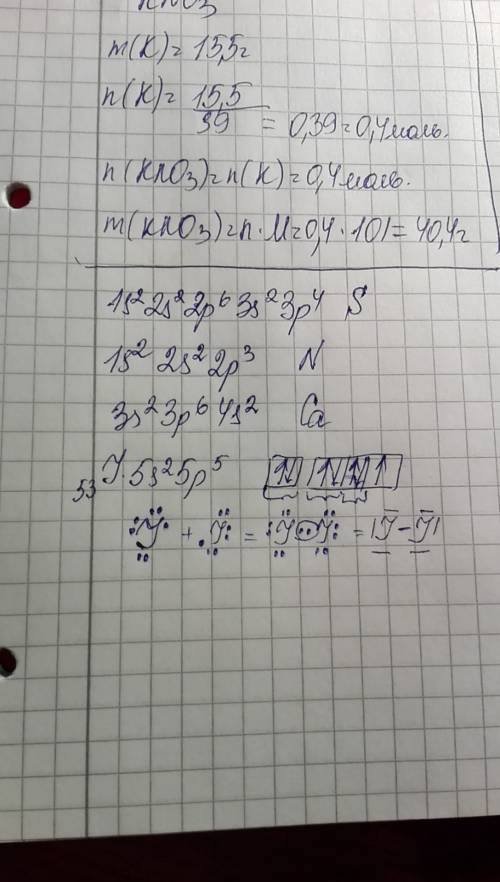 KNO3
m(K)= 15,5г
n(K)= 15,5/39 = 0,39=0,4моль.
n(KNO3)=n(K)=0,4моль.
m(KNO3)=n·M=0,4·101=40,4г
1s² 2s² 2p⁶ 3s² 3p⁴ S
1s² 2s² 2p³ N
3s² 3p⁶ 4s² Ca
53 J. 5s² 5p⁵
J + J = J J = |J - J|